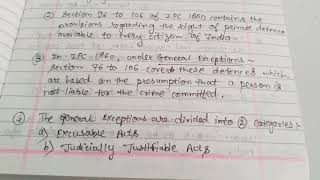 ② Section 96 to 106 of IPC 1860 contains the
provisions regarding the right of private defence
available to every citizen of India
③ In IPC 1860, under General Exceptions -
Section 76 to 106 covers these defences which
are based on the presumption that a person is
not liable for the crime committed.
④ The general exceptions are divided into ② categories:-
a) Excusable Acts
b) Judicially Justifiable Acts